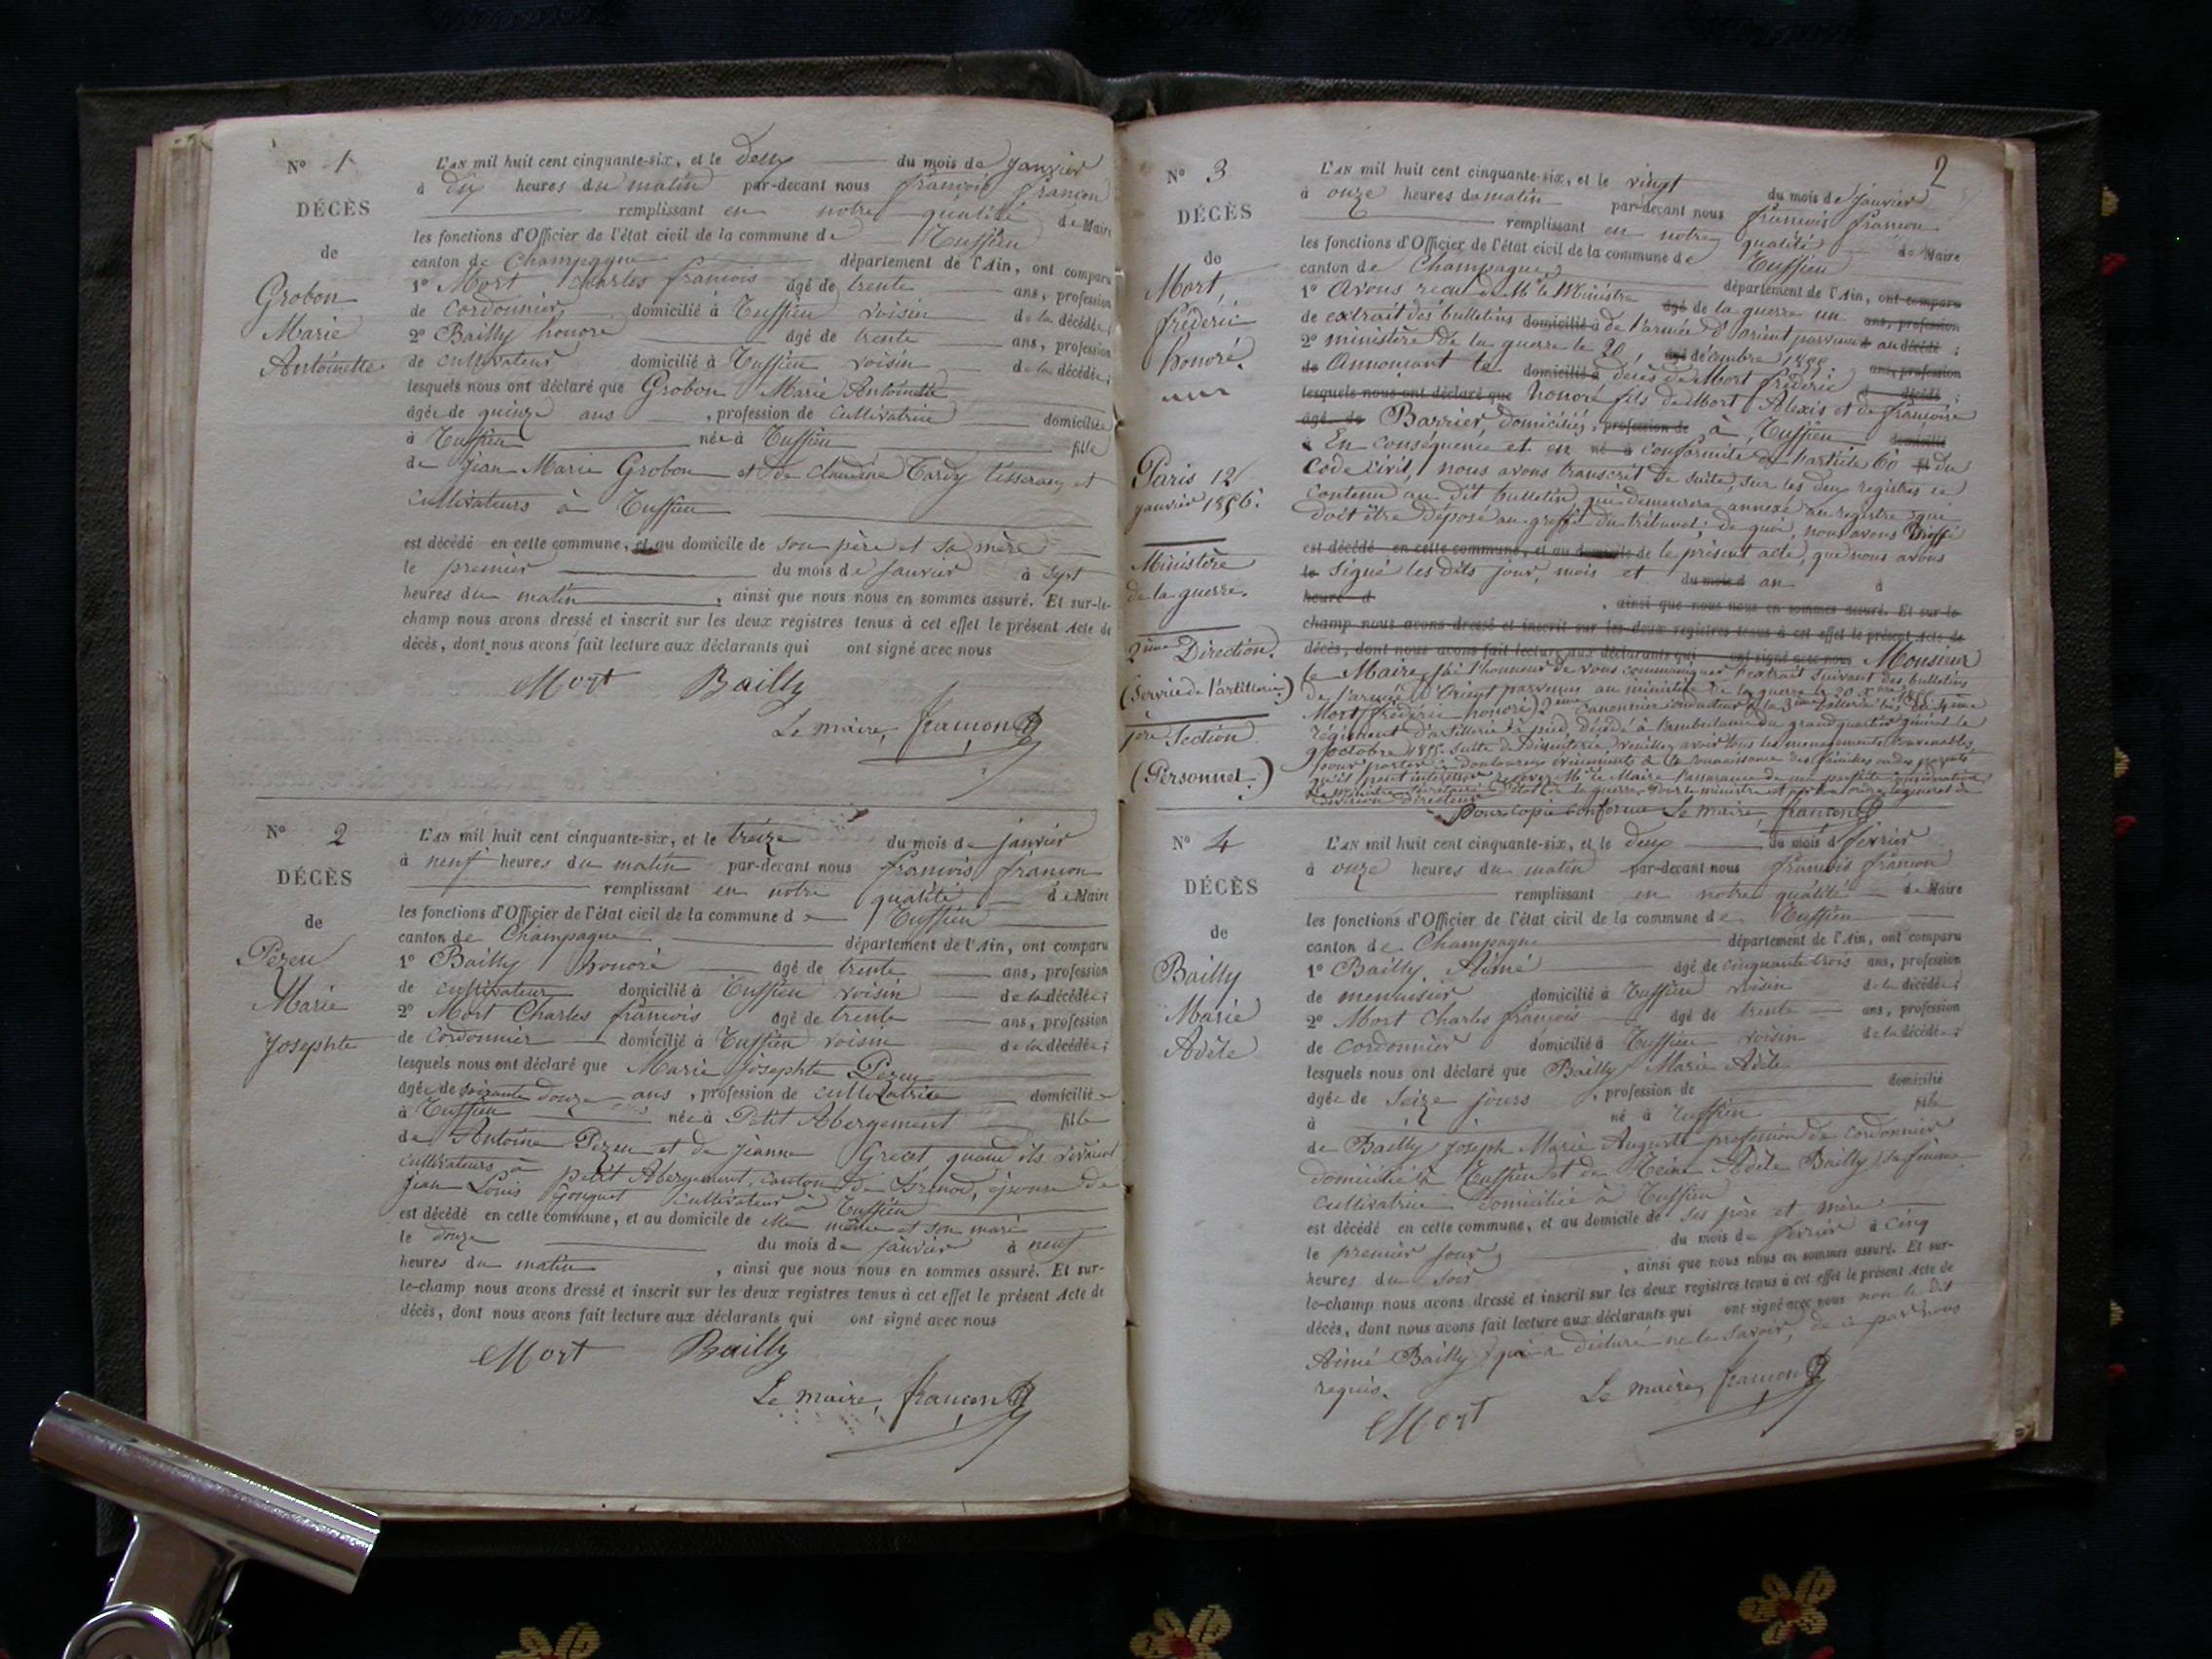 N° 1
DÉCÈS
de
Grobon
Marie
Antoinette
L'AN mil huit cent cinquante-six, et le deux du mois de janvier
à dix heures du matin par-devant nous françois françon
remplissant en notre qualité de Maire
les fonctions d'Officier de l'état civil de la commune de
canton de Champagne département de l'Ain, ont comparu
1° Mort Charles françois âgé de trente ans, profession
de cordonnier domicilié à voisin de la décédée;
2° Bailly honoré âgé de trente ans, profession
de cultivateur domicilié à voisin de la décédée;
lesquels nous ont déclaré que Grobon Marie Antoinette
âgée de quinze ans, profession de cultivatrice domiciliée
à née à fille
de Jean Marie Grobon et de Claudine Tardy tisserans et
cultivateurs à
est décédé en cette commune, et au domicile de son père et sa mère
le premier du mois de janvier à sept
heures du matin, ainsi que nous nous en sommes assuré. Et sur-le-
champ nous avons dressé et inscrit sur les deux registres tenus à cet effet le présent Acte de
décès, dont nous avons fait lecture aux déclarants qui ont signé avec nous
Mort Bailly
Le maire, françon
N° 2
DÉCÈS
de
Pezeu
Marie
Josephte
L'AN mil huit cent cinquante-six, et le treize du mois de janvier
à neuf heures du matin par-devant nous françois françon
remplissant en notre qualité de Maire
les fonctions d'Officier de l'état civil de la commune de
canton de Champagne département de l'Ain, ont comparu
1° Bailly honoré âgé de trente ans, profession
de cultivateur domicilié à voisin de la décédée;
2° Mort Charles françois âgé de trente ans, profession
de cordonnier domicilié à voisin de la décédée;
lesquels nous ont déclaré que Marie Josephte Pezeu
âgée de soixante douze ans, profession de cultivatrice domiciliée
à née à Petit Abergement fille
de Antoine Pezeu et de Jeanne quand ils vivaient
cultivateurs à petit Abergement, canton de Brenod, épouse de
Jean Louis cultivateur à
est décédé en cette commune, et au domicile de elle même et son mari
le douze du mois de janvier à neuf
heures du matin, ainsi que nous nous en sommes assuré. Et sur-
le-champ nous avons dressé et inscrit sur les deux registres tenus à cet effet le présent Acte de
décès, dont nous avons fait lecture aux déclarants qui ont signé avec nous
Mort Bailly
Le maire, françon
2
N° 3
DÉCÈS
de
Mort,
frédéric
honoré.
Paris 12
janvier 1856.
Ministère
de la guerre.
2ème Direction.
(Service de l'artillerie)
1ère Section.
(Personnel.)
L'AN mil huit cent cinquante-six, et le vingt du mois de janvier
à onze heures du matin par-devant nous françois françon
remplissant en notre qualité de Maire
les fonctions d'Officier de l'état civil de la commune de
canton de Champagne, département de l'Ain, ont comparu
1° Avons reçu de Mr le Ministre âgé de la guerre un ans, profession
de extrait des bulletins domicilié à de l'armée d'orient parvenu au décédé;
2° ministère de la guerre le 20, âgé décembre 1855 ans, profession
de Annoncant le domicilié à décès de Mort frédéric d décédé;
lesquels nous ont déclaré que honoré fils de Mort Alexis et de françoise
âgé de Barrier, domiciliés, profession de à domicilié
à En conséquence et en né à conformité de l'article 60 fi du
Code civil, nous avons transcrit de suite, sur les deux registres le
contenu au dit bulletin qui demeurera annexé au registre que
doit être déposé au greffe du tribunal; de quoi, nous avons dressé
est décédé en cette commune, et au domicile de le présent acte, que nous avons
le signé les dits jour, mois et du mois d an à
heure d, ainsi que nous nous en sommes assuré. Et sur-le-
champ nous avons dressé et inscrit sur les deux registres tenus à cet effet le présent Acte de
décès, dont nous avons fait lecture aux déclarants qui ont signé avec nous Monsieur
le Maire, j'ai l'honneur de vous communiquer l'extrait suivant des bulletins
de l'armée d'Orient parvenus au ministère de la guerre le 20 Xbre 1855
Mort (frédéric honoré) 2ème canonnier conducteur à la 3ème batterie bis du 4ème
régiment d'artillerie à pied, décédé à l'ambulance du grand quartier général le
9 octobre 1855. suite de Dissenterie. Veuillez avoir tous les ménagements convenables,
pour porter ce douloureux évènement à la connaissance des familles ou des parents
qu'il peut intéresser. Recevez Mr le Maire l'assurance de ma parfaite considération
Le ministre Secrétaire d'état de la guerre. Pour le ministre et par son ordre le général de
division directeur
Pour copie conforme Le maire, françon
N° 4
DÉCÈS
de
Bailly
Marie
Adèle
L'AN mil huit cent cinquante-six, et le deux du mois d février
à onze heures du matin par-devant nous françois françon
remplissant en notre qualité de Maire
les fonctions d'Officier de l'état civil de la commune de
canton de Champagne département de l'Ain, ont comparu
1° Bailly Aimé âgé de cinquante trois ans, profession
de menuisier domicilié à voisin de la décédée;
2° Mort Charles françois âgé de trente ans, profession
de cordonnier domicilié à voisin de la décédée;
lesquels nous ont déclaré que Bailly Marie Adèle
âgée de seize jours, profession de domicilié
à né à fille
de Bailly joseph Marie Auguste profession de cordonnier
domicilié à et de Adèle Bailly sa femme
cultivatrice domiciliée à
est décédé en cette commune, et au domicile de ses père et mère
le premier jour du mois de février à cinq
heures du soir, ainsi que nous nous en sommes assuré. Et sur-
le-champ nous avons dressé et inscrit sur les deux registres tenus à cet effet le présent Acte de
décès, dont nous avons fait lecture aux déclarants qui ont signé avec nous non le dit
Aimé Bailly qui a déclaré ne le savoir, de ce par nous
requis.
Mort Le maire, françon